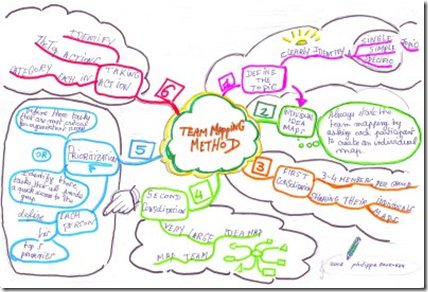 TEAM MAPPING
METHOD
1
DEFINE
THE
TOPIC
CLEARLY IDENTIFY
SINGLE
SIMPLE
SPECIFIC
TOPIC
2
INDIVIDUAL
IDEA
MAPS
Always start the
team mapping by
asking each participant
to create an individual
map.
3
FIRST
Consolidation
3-4 MEMBERS PER GROUP
SHARING THESE INDIVIDUALS
MAPS
4
SECOND
CONSOLIDATION
VERY LARGE IDEA MAP
MAP TEAM
5
PRIORITIZATION
Define three tasks
that are most critical
OR
Identify three
tasks that will provide
a quick boost to the
EACH
PERSON
define
his
top 5
priorities
6
TAKING
ACTION
IDENTIFY
THE ACTIONS
CATEGORY EACH IN
philippe